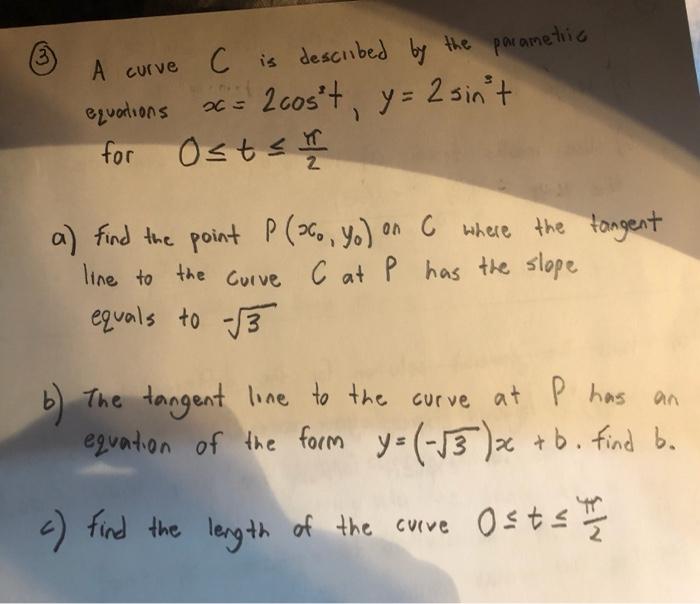 ③ A curve C is described by the parametric
equations x = 2cos³t, y = 2sin³t
for 0 ≤ t ≤ π/2
a) find the point P(x₀, y₀) on C where the tangent
line to the curve C at P has the slope
equals to -√3
b) The tangent line to the curve at P has an
equation of the form y=(-√3)x + b. find b.
c) find the length of the curve 0 ≤ t ≤ π/2